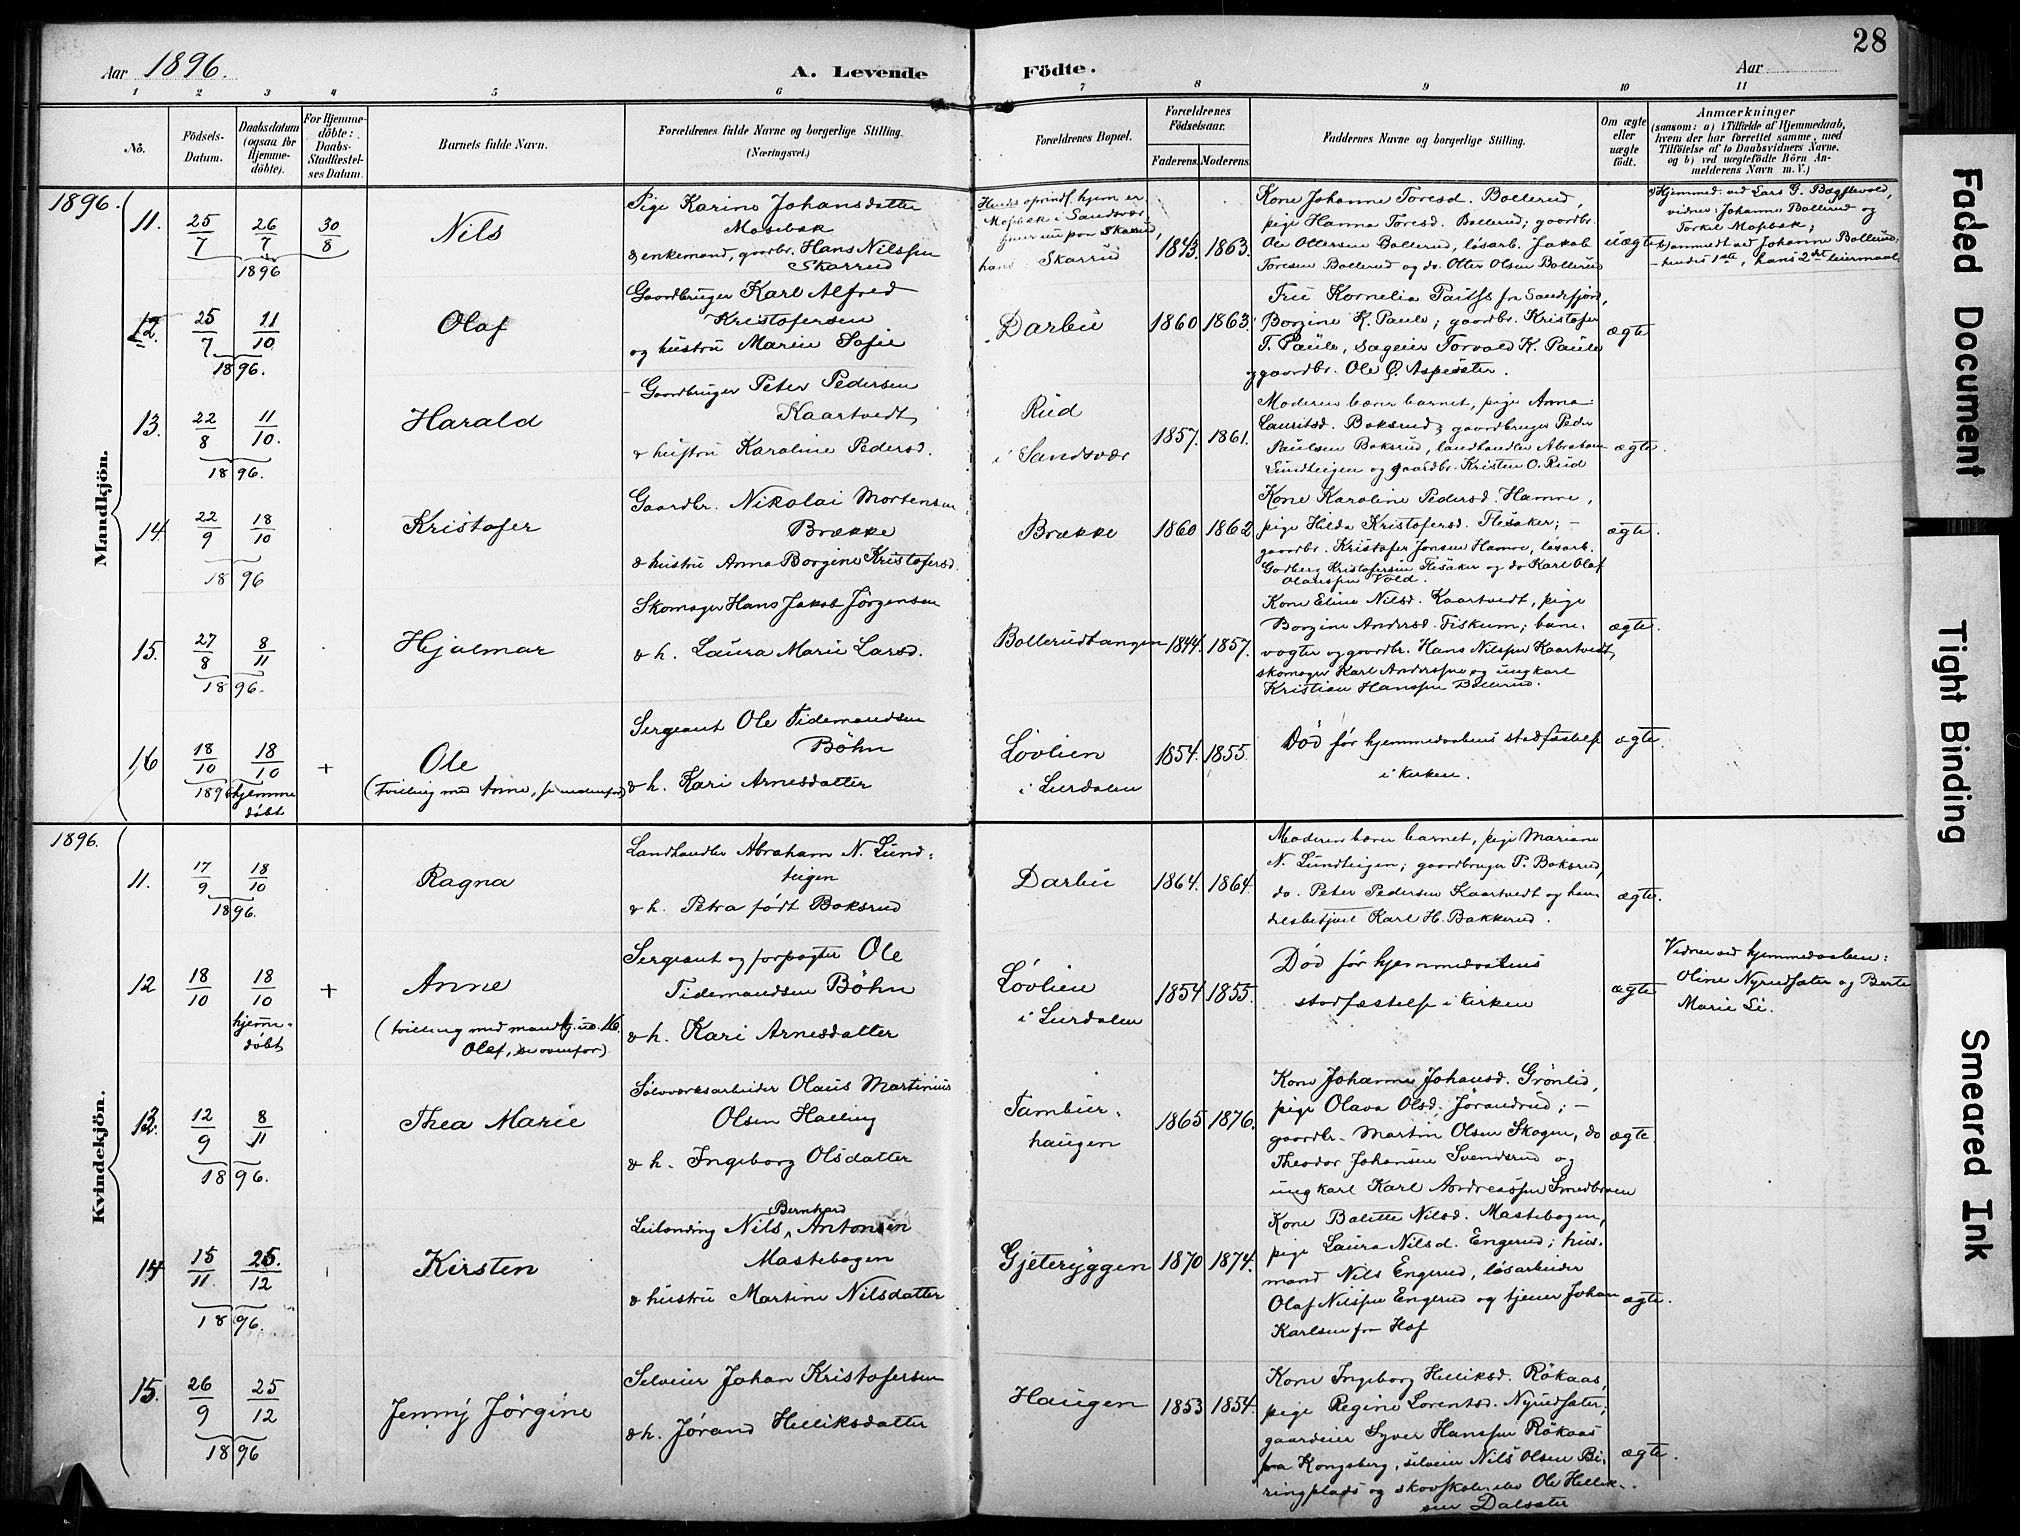 28
Aar 1896.
A. Levende
Födte.
Aar
1 2 3 4 5 6 7 8 9 10 11
No.
Födsels-
Datum.
Daabsdatum
(ogsaa for
Hjemme-
döbte).
For Hjemme-
döbte:
Daabs-
Stadfæstel-
ses Datum.
Barnets fulde Navn.
Forældrenes fulde Navne og borgerlige Stilling.
(Næringsvei.)
Forældrenes Bopæl.
Forældrenes
Födselsaar.
Faderens. Moderens.
Faddernes Navne og borgerlige Stilling.
Om ægte
eller
uægte
födt.
Anmærkninger
(saasom: a) i Tilfælde af Hjemmedaab,
hvem der har forrettet samme, med
Tilföielse af to Daabsvidners Navne,
og b) ved uægtefödte Börn An-
melderens Navn m. V.)
Mandkjön.
1896.
11.
25/7
26/7
30/8
1896
Nils
Pige Karine Johansdatter
Mosebak
& enkemand, gaardbr. Hans Nilssen
Skarrud
Hendes oprindl. hjem er
Mosbak i Sandsvær
hans Skarrud
1843. 1863.
Kone Johanne Toresd. Bollerud,
pige Hanna Toresd. Bollerud; gaardbr.
Ole Ottersen Bollerud, løsarb. Jakob
Toresen Bollerud og do. Otter Olsen Bollerud
uægte
Hjemmed. ved Lars G.
vidner: Johanne Bollerud og
Torkel Mosbak;
anmeldt ved Johanne Bollerud;
hendes 1ste, hans 2det leiermaal
12.
25/7
11/10
1896.
Olaf
Gaardbruger Karl Alfred
Kristofersen
og hustru Maren Sofie
Darbu
1860 1863.
Fru Kornelia fra Sandefjord,
Borgine K. Paule; gaardbr. Kristofer
T. Paule, sageier Torvald K. Paule
og gaardbr. Ole Ø. Aspesæter.
ægte
13.
22/8
11/10.
1896.
Harald
Gaardbruger Peter Pedersen
Kaartvedt
& hustru Karoline Pedersd.
Rud
i Sandsvær
1857. 1861.
Moderen bærer barnet, pige Anna
Lauritsd. Boksrud; gaardbruger Peder
Paulsen Boksrud, landhandler Abraham
Lundteigen og gaardbr. Kristen O. Rud
ægte.
14.
22/9
18/10
1896
Kristofer
Gaardbr. Nikolai Mortensen
Brække
& hustru Anna Borgine Kristofersd.
Brække
1860 1862
Kone Karoline Pedersd. Hamre,
pige Hilda Kristofersd. Flesaker; –
gaardbr. Kristofer Jonsen Hamre, løsarb.
Godberg Kristofersen Flesaker og do Karl Olaf
Olaussen Vold.
ægte.
15.
27/8
8/11
1896.
Hjalmar
Skomager Hans Jakob Jørgensen
& h. Laura Marie Larsd.
Bollerudtangen
1844. 1857.
Kone Eline Nilsd. Kaartvedt, pige
Borgine Andersd. Fiskum; bane-
vogter og gaardbr. Hans Nilssen Kaartvedt,
skomager Karl Anderssen og ungkarl
Kristian Hanssen Bollerud.
ægte.
16
18/10
18/10
+
1896
hjemme
døbt
Ole
(tvilling med Anne, se nedenfor)
Sergeant Ole Tidemandsen
Böhn
& h. Kari Arnesdatter
Løvlien
i Lurdalen
1854. 1855.
Död før hjemmedaabens stadfæstelse
i kirken.
ægte.
Kvindekjön.
1896.
11.
17/9
18/10
1896.
Ragna
Landhandler Abraham N. Lund-
teigen
& h. Petra født Boksrud
Darbu
1864. 1864.
Moderen bærer barnet, pige Mariane
N. Lundteigen; gaardbruger P. Boksrud,
do. Peter Pedersen Kaartvedt og han-
delsbetjent Karl H. Bakkerud.
ægte.
12
18/10
18/10
hjemme-
døbt
+
Anne
(tvilling med mandkj. no. 16.
Olef, se ovenfor)
Sergeant og forpagter Ole
Tidemandsen Böhn
& h. Kari Arnesdatter
Løvlien
i Lurdalen
1854 1855.
Död før hjemmedaabens
stadfæstelse i kirken
ægte
Vidner ved hjemmedaaben:
Oline Nyrudsæter og Berte
Marie Li.
13.
12/9
8/11
1896.
Thea Marie
Sølvverksarbeider Olaus Martinius
Olsen Halling
& h. Ingeborg Olsdatter
Tambur-
haugen
1865 1876.
Kone Johanne Johansd. Grönlid,
pige Olava Olsd. Jörandrud; –
gaardbr. Martin Olsen Skogen, do
Theodor Johansen Svendsrud og
ungkarl Karl Andreassen Smedbraaten
ægte.
14
15/11.
25/12
1896.
Kirsten
Leilænding Nils Bernhard Antonsen
Mastebogen
& hustru Martine Nilsdatter
Gjeteryggen
1870 1874.
Kone Bolette Nilsd. Mastebogen,
pige Laura Nilsd. Engerud; hus-
mand Nils Engerud, løsarbeider
Olaf Nilssen Engerud og tjener Johan
Karlsen fra Hof
ægte.
15.
26/9
25/12
1896
Jenny Jörgine
Selveier Johan Kristofersen
& h. Jørand Helliksdatter
Haugen
1853 1854.
Kone Ingeborg Helliksd. Rökaas,
pige Regine Lorentsd. Nyrudsæter;
gaardeier Syver Hanssen Rökaas
fra Kongsberg, selveier Nils Olsen Bi-
ringplads og Ole Hellik-
sen Dalsæter
ægte.
Faded Document
Tight Binding
Smeared Ink